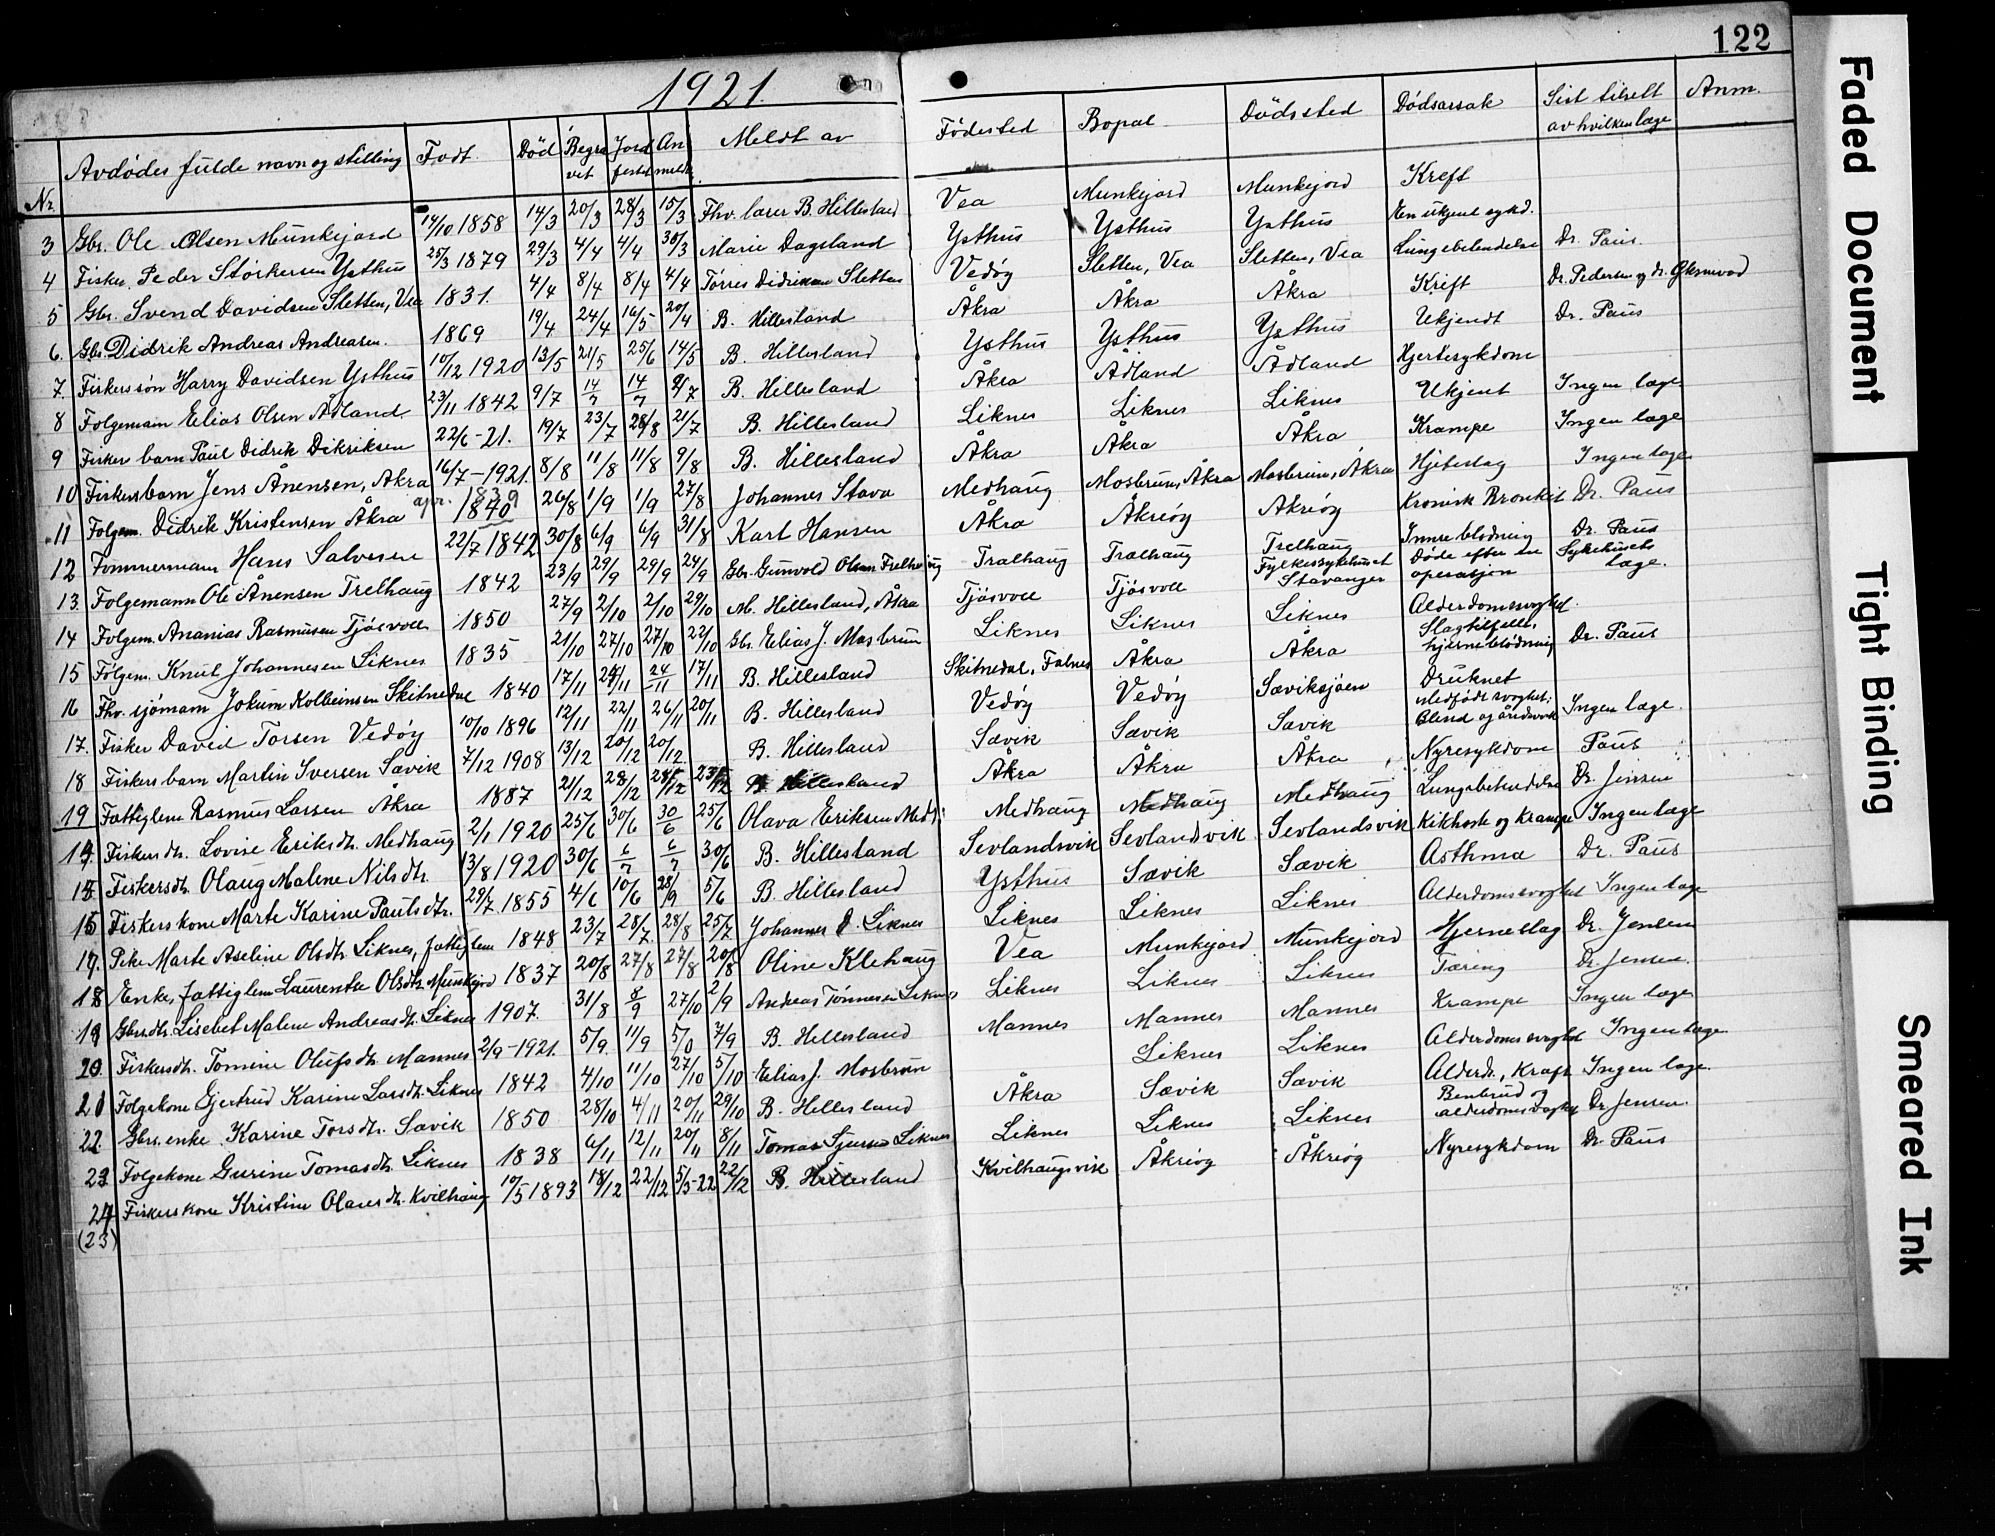 122
1921.
Nr. Avdødes fulde navn og stilling Født. Død Begra vet Jord festet An meldt Meldt av Fødested Bopæl Dödssted Dødsarsak Sist tilsett av hvilken læge Anm.
3 Gbr. Ole Olsen Munkejord 14/10 1858 14/3 20/3 28/3 15/3 Fhv. lærer B. Hillesland Vea Munkejord Munkejord Kreft
4 Fisker Peder Størkersen Ysthus 25/3 1879 29/3 4/4 4/4 30/3 Marie Dagsland Ysthus Ysthus Ysthus En ukjent sykd.
5 Gbr. Svend Davidsen Sletten, Vea 1831. 4/4 8/4 8/4 4/4 Tørres Didriksen Sletten Vedöy Sletten, Vea Sletten, Vea Lungebetendelse Dr. Paus.
6. Gbr. Didrik Andreas Andreasen. 1869 19/4 24/4 16/5 20/4 B. Hillesland Åkra Åkra Åkra Kreft Dr. Pedersen og dr.
7. Fiskerssön Harry Davidsen Ysthus 10/12 1920 13/5 21/5 25/6 14/5 B. Hillesland Ysthus Ysthus Ysthus Ukjendt Dr. Paus
8 Folgemann Elias Olsen Ådland 23/11 1842 9/7 14/7 14/7 9/7 B. Hillesland Åkra Ådland Ådland Hjertesykdom
9 Fisker barn Paul Didrik Dikriksen 22/6-21. 19/7 23/7 28/8 21/7 B. Hillesland Liknes Liknes Liknes Ukjent Ingen læge
10 Fiskersbarn Jens Ånensen, Åkra 16/7-1921. 8/8 11/8 11/8 9/8 B. Hillesland Åkra Åkra Åkra Krampe Ingen læge
11 Folgem. Didrik Kristensen Åkra apr. 1839 1840 26/8 1/9 1/9 27/8 Johannes Stava Medhaug Mosbrun, Åkra Mosbrun, Åkra Hjerteslag Ingen læge
12 Tømmermann Hans Salvesen 22/7 1842 30/8 6/9 6/9 31/8 Kart Hansen Åkra Åkreöy Åkreöy Kronisk Bronkit Dr. Paus
13. Folgemann Ole Ånensen Trelhaug 1842 23/9 29/9 29/9 24/9 Gbr. Gunvald Olsen Trelhaug Trælhaug Trælhaug Trelhaug Innre blødning Dr. Paus
14 Folgem. Ananias Rasmussen Tjösvoll 1850 27/9 2/10 2/10 29/10 M. Hillesland, Åkra Tjösvoll Tjösvoll Fylkessykehuset Stavanger Døde efter en operasjon Sykehusets læge.
15 Fölgem. Knut Johannesen Liknes 1835 21/10 27/10 27/10 22/10 Gbr. Elias J. Mosbrun Liknes Liknes Liknes Alderdomssvaghet.
16 Fhv. sjömann Jokum Kolbeinsen Skitnedal 1840 17/11 24/11 24/11 17/11 B. Hillesland Skitnedal, Falnes Åkra Åkra Slagtilfelle, hjerneblödning Dr. Paus
17. Fisker David Torsen Vedöy 10/10 1896 12/11 22/11 26/11 20/11 B. Hillesland Vedöy Vedöy Sæviksjøen Druknet
18 Fiskers barn Martin Iversen Sævik 7/12 1908 13/12 20/12 20/12 B. Hillesland Sævik Sævik Sævik Medfödt svaghet: Blind og åndsvak Ingen læge.
19 Fattiglem Rasmus Larsen Åkra 1887 21/12 28/12 28/12 23/12 B. Hillesland Åkra Åkra Åkra Nyresykdom Paus
14. Fiskersdtr. Lovise Eriksdtr. Medhaug 2/1 1920 25/6 30/6 30/6 25/6 Olava Eriksen Medh. Medhaug Medhaug Medhaug Lungebetendelse Dr. Jensen
15. Fiskersdtr. Olaug Malene Nilsdtr. 13/8 1920 30/6 6/7 6/7 30/6 B. Hillesland Sevlandsvik Sevlandsvik Sevlandsvik Kikhoste og krampe Ingen læge
16 Fiskerskone Marte Karine Paulsdtr. 29/7 1855 4/6 10/6 28/9 5/6 B. Hillesland Ysthus Sævik Sævik Asthma Dr. Paus
17. Pike Marte Aseline Olsdtr. Liknes, fattiglem 1848 23/7 28/7. 28/8 25/7 Johannes D. Liknes Liknes Liknes Liknes Alderdomssvaghet Ingen læge
18 Enke, fattiglem Laurentse Olsdtr. Munkejord 1837 20/8 27/8 27/8 20/8 Oline Klehaug Vea Munkejord. Munkejord Hjerneslag Dr. Jensen
19 Gbrsdtr. Lisebet Malene Andreasdtr. Liknes 1907. 31/8 8/9 27/10 2/9 Andreas Tönnesen Liknes Liknes Liknes Liknes Tæring Dr. Jensen.
20. Fiskersdtr. Tomine Olufsdtr. Mannes 2/9-1921. 5/9. 11/9 5/0 7/9 B. Hillesland Mannes Mannes Mannes Krampe Ingen læge
21 Folgekone Gjertrud Karine Larsdtr. Liknes 1842 4/10 11/10 27/10 5/10 Elias J. Mosbrun Liknes Liknes Alderdomssvaghet Ingen læge
22. Gbrs. enke Karine Torsdtr. Sævik 1850 28/10 4/11 20/11 29/10 B. Hillesland Åkra Sævik Sævik Alderd., Kraft Ingen læge.
23 Folgekone Gurine Tomasdtr. Liknes 1838 6/11 12/11 20/11 8/11 Tomas Sjursen Liknes Liknes Liknes Liknes Benbrud og alderdomssvaghet Dr. Jensen.
24 Fiskerskone Kristine Olausdtr. Kvilhaug 10/5 1893 18/12 22/12 5/5-22 22/12 B. Hillesland Kvilhaugsvik Åkreöy Åkreöy Nyresykdom Dr. Paus
(23)
Faded Document
Tight Binding
Smeared Ink